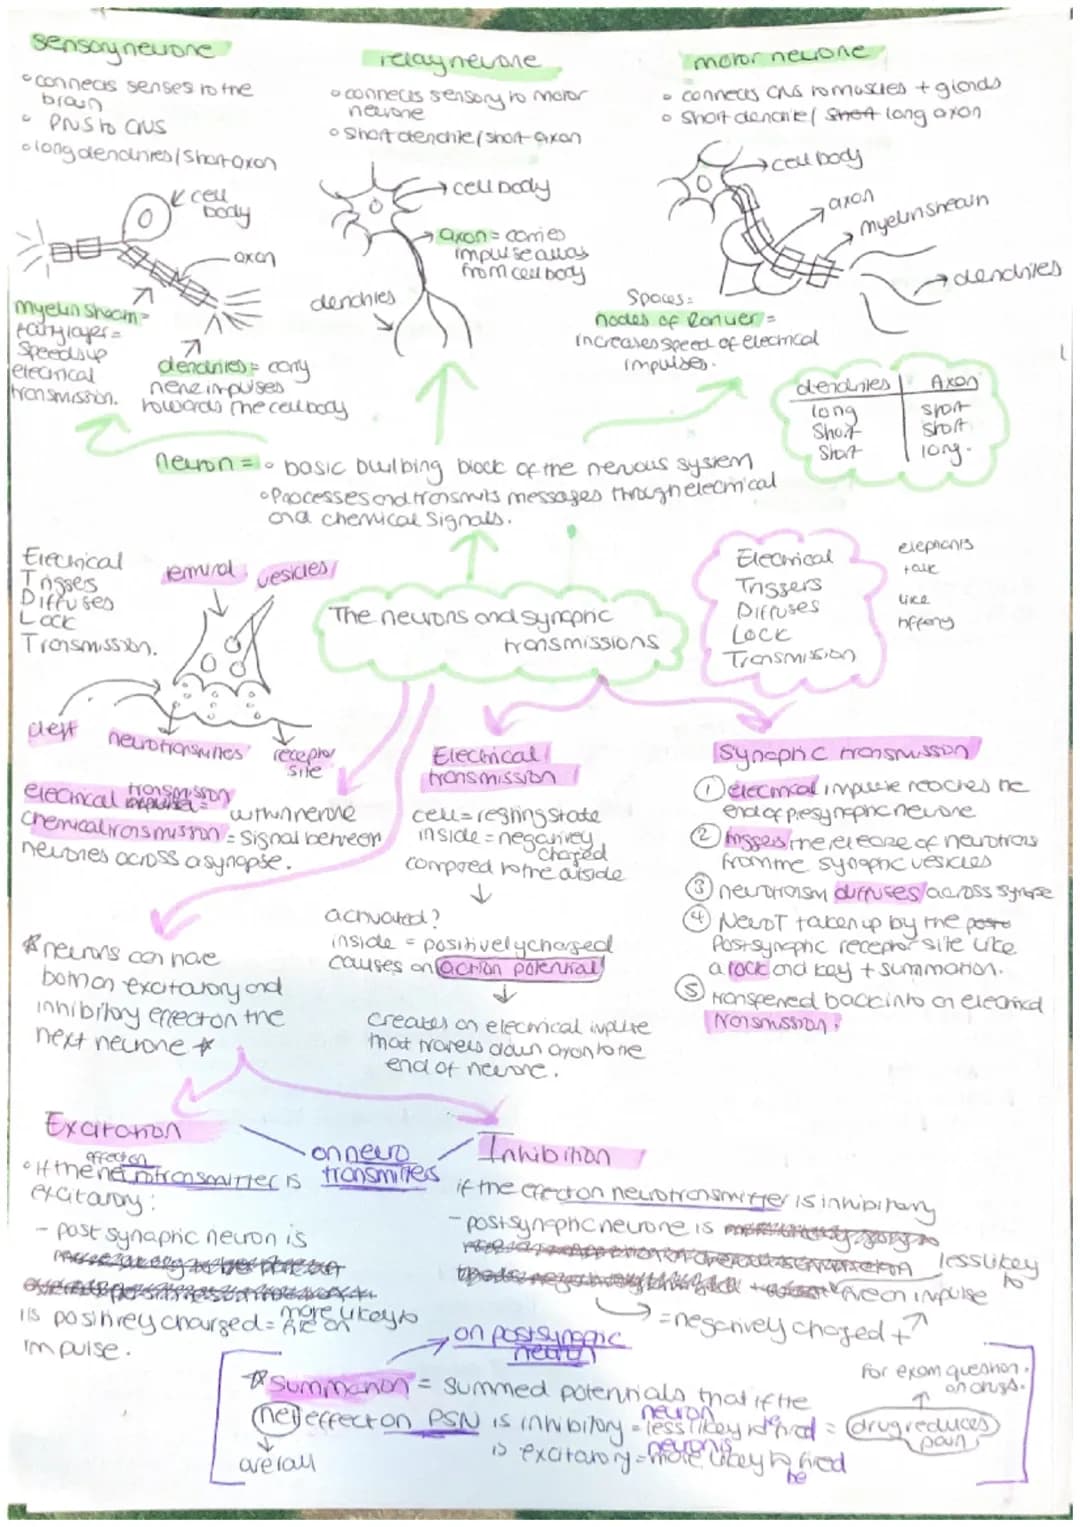 sensory neurone
° connects senses to the
brain
° PNS to CNS
° long dendrites / short axon
cell
body
axon
myelin sheath =
fatty layer =
speeds up
electrical
transmission.
dendrites = carry
nerve impulses
towards the cell body
relay neurone
° connects sensory to motor
neurone
° short dendrite / short axon
cell body
axon = carries
impulse away
from cell body
dendrites
motor neurone
° connects CNS to muscles + glands
° short dendrite / short long axon
cell body
axon
myelin sheath
dendrites
Spaces =
nodes of Ranvier =
increases speed of electrical
impulses.
dendrites | Axon
long short
Short short
Short long.
neuron = ° basic builbing block of the nervous system
° Processes and transmits messages through electrical
and chemical signals.
Electrical
Triggers
Diffuses
Lock
Transmission.
terminal
vesicles
cleft
neurotransmitters
receptor
site
The neurons and synaptic
transmissions
Electrical
Triggers
Diffuses
Lock
Transmission
elephants
talk
like
tiffany
electrical transmission = within nerone
chemical transmission = signal between
neurones across a synapse.
Electrical
transmission
cell = resting state
inside = negatively
charged
compared to the outside
activated?
inside = positively charged
causes an action potential
creates an electrical impulse
that travels down axon to the
end of neurone.
Synaptic transmission
① electrical impulse reaches the
end of presynaptic neurone
② triggers the release of neurotrans
from the synaptic vesicles
③ neurotransm diffuses across synapse
④ NeuroT taken up by the post
Postsynaptic receptor site like
a lock and key + summation.
⑤ transferred back into an electrical
transmission.
* neurons can have
both an excitatory and
inhibitory effect on the
next neurone *
Excitation
on neuro
transmitters
Inhibition
° If the effect on neurotransmitter is
excitatory:
- post synaptic neuron is
is positivey charged = more likey to
fire an
impulse.
if the effect on neurotransmitter is inhibitory
- postsynaptic neurone is
less likey
to
fire an inpulse
= negatively charged +
on postsynaptic
neuron
* Summation = summed potentials that if the
(net) effect on PSN is inhibitory = neuron less likey to be fired = drug reduces
pain
is excitatory = neuron is more likey to be fired
overall
For exam question.
on drugs.